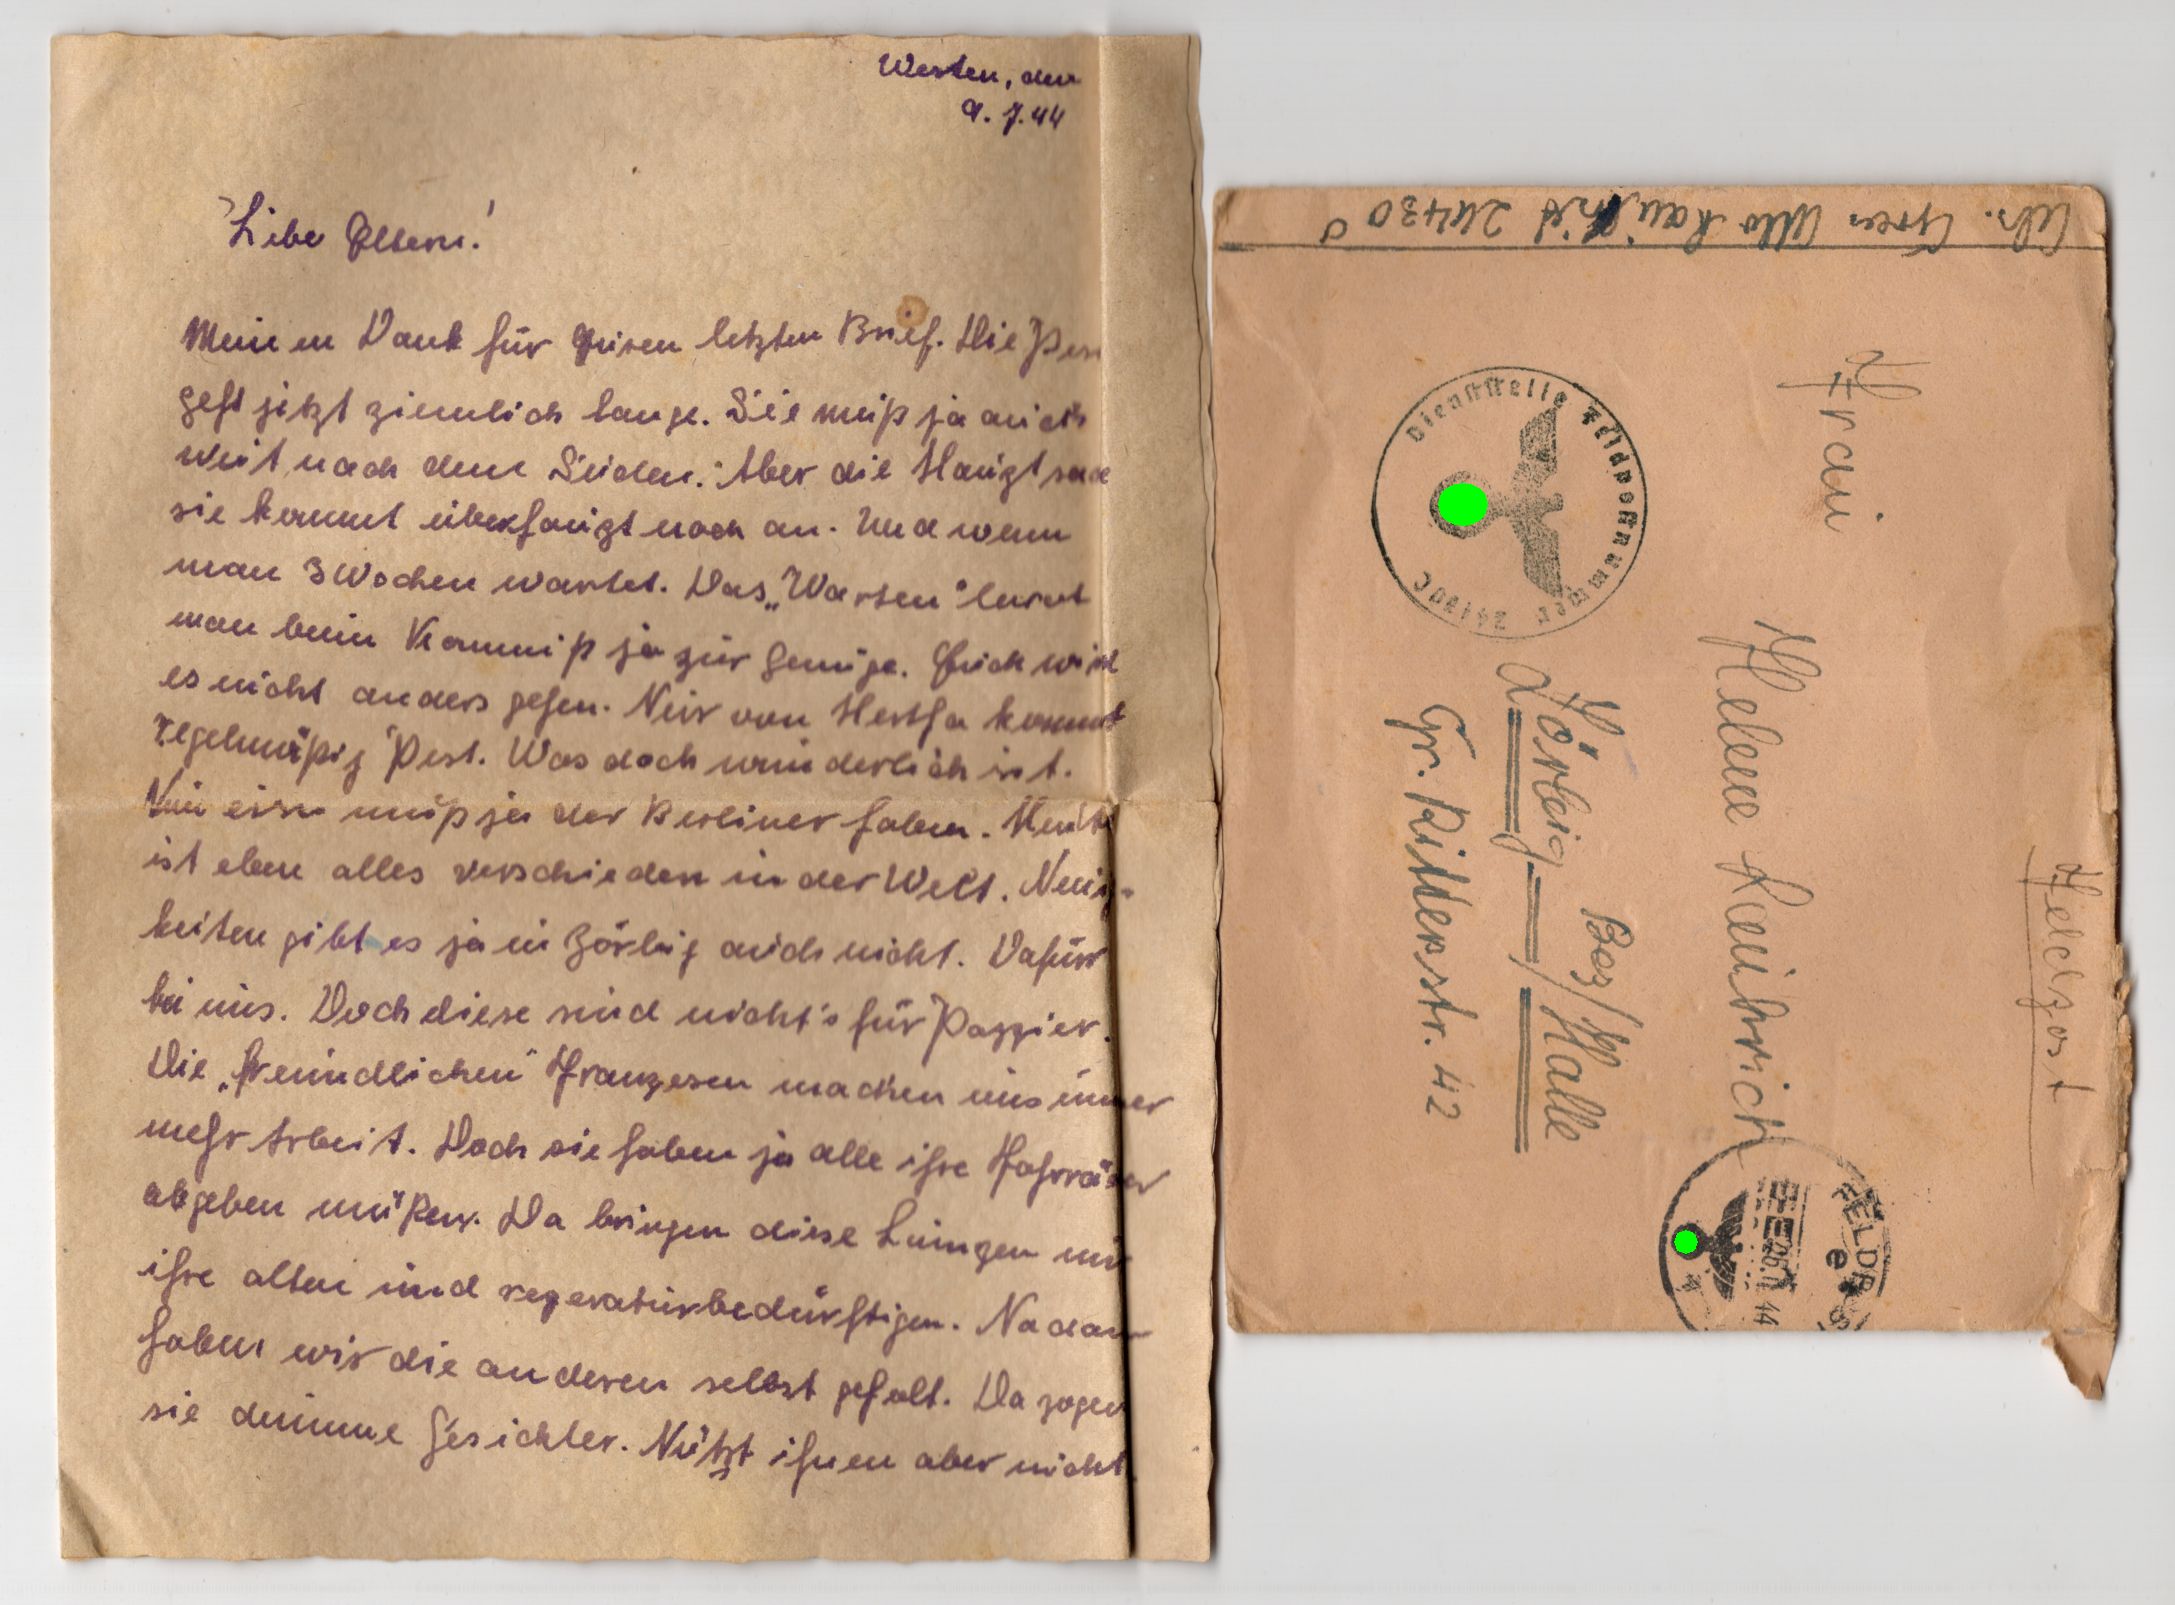 Westen, den
9. 7. 44
Liebe Eltern!
Meinen Dank für Euren letzten Brief. Die Post
geht jetzt ziemlich lange. Sie muß ja auch
weit nach dem Süden. Aber die Hauptsache
sie kommt überhaupt noch an. Und wenn
man 3 Wochen wartet. Das „Warten“ lernt
man beim Kommiß ja zur Genüge. Euch wird
es nicht anders gehen. Nur von Hertha kommt
regelmäßig Post. Was doch wunderlich ist.
muß ja der Berliner haben.
ist eben alles verschieden in der Welt. Neuig-
keiten gibt es ja in Zörbig auch nicht. Dafür
bei uns. Doch diese sind nicht's für Pappier.
Die „freundlichen“ Franzosen machen uns immer
mehr Arbeit. Doch sie haben ja alle ihre Fahrräder
abgeben müßen. Da bringen diese Lumpen nur
ihre alten und reperaturbedürftigen. Na dann
haben wir die anderen selbst geholt. Da zogen
sie dumme Gesichter. Nützt ihnen aber nicht.
Abs. Gren Otto 24430
Dienststelle Feldpostnummer
Feldpost
Frau
Helene Kauhrich
Zörbig
Bez/Halle
Gr. Ritterstr. 42
FELDP
e
44